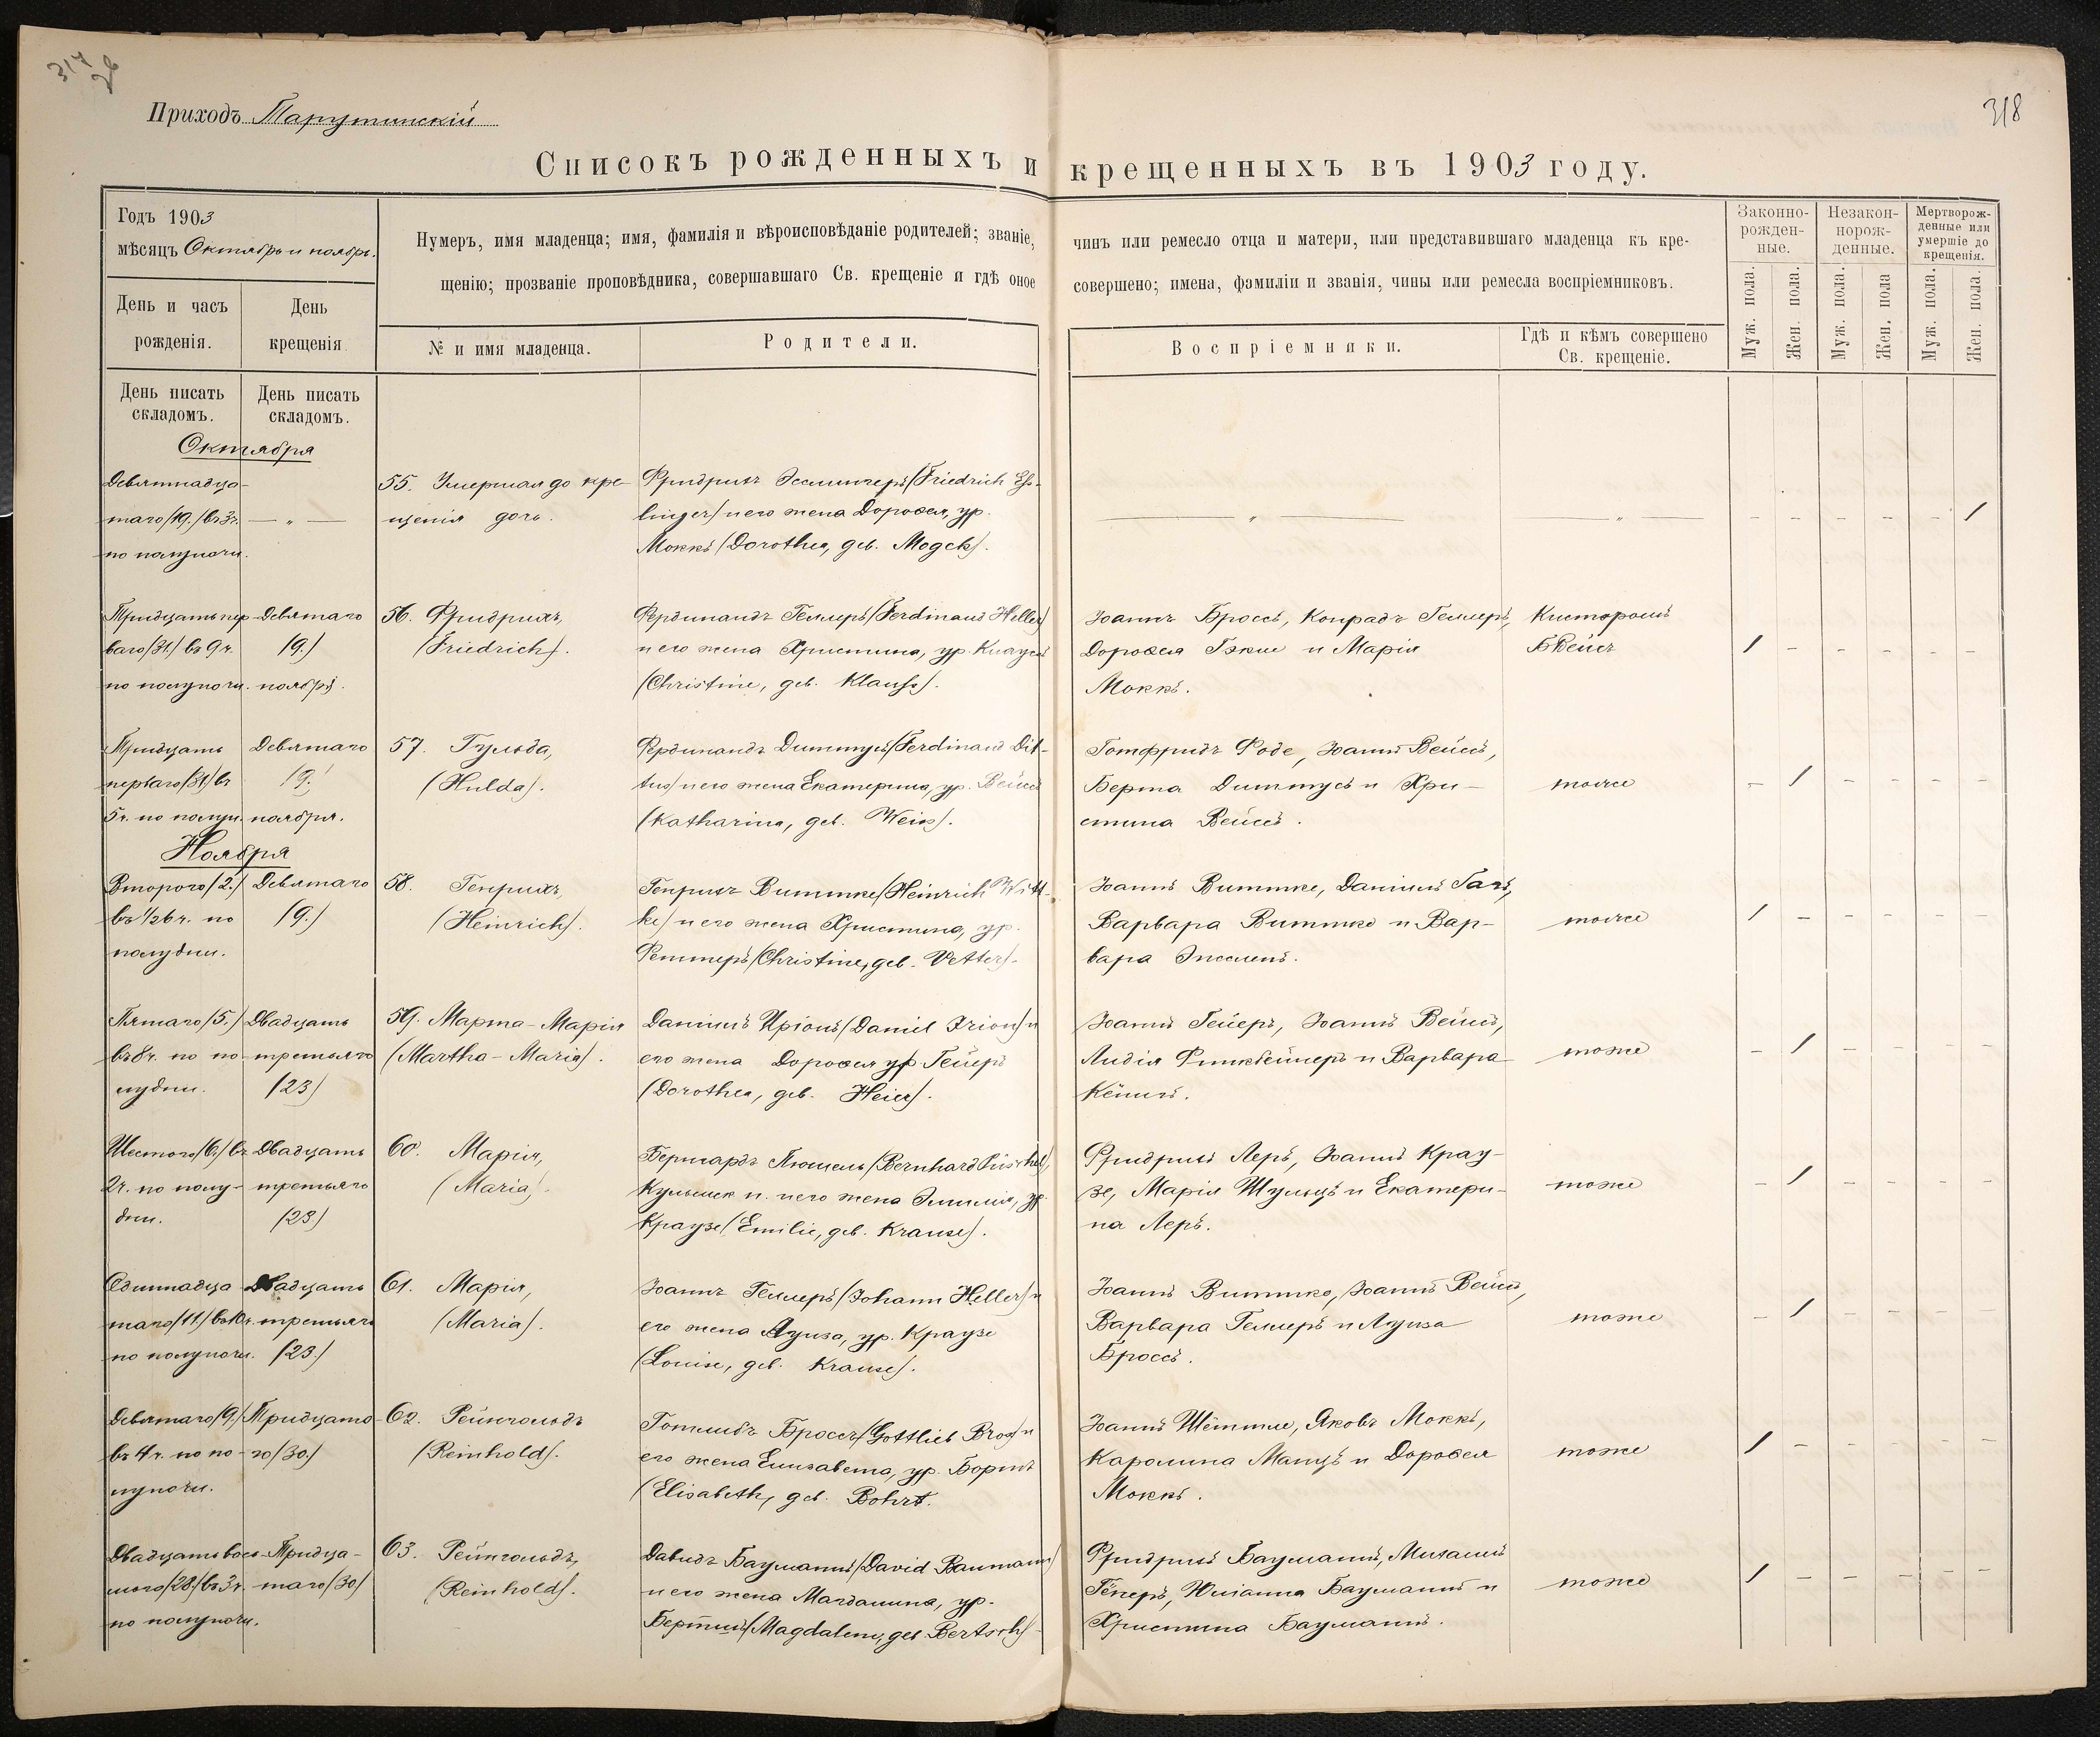 317
об
318
Приходъ Тарутинскій
Списокъ рожденныхъ и крещенныхъ въ 1903 году.
Годъ 1903
мѣсяцъ Октябрь и ноябрь.
Нумеръ, имя младенца; имя, фамилія и вѣроисповѣданіе родителей; званіе, чинъ или ремесло отца и матери, или представившаго младенца къ кре-
щенію; прозваніе проповѣдника, совершавшаго Св. крещеніе и гдѣ оное совершено; имена, фамиліи и званія, чины или ремесла воспріемниковъ.
Законно-
рожден-
ные.
Незакон-
норож-
денные.
Мертворож-
денные или
умершіе до
крещенія.
День и часъ
рожденія.
День
крещенія
№ и имя младенца.
Родители.
Воспріемники.
Гдѣ и кѣмъ совершено
Св. крещеніе.
Муж. пола.
Жен. пола.
Муж. пола.
Жен. пола
Муж. пола.
Жен. пола.
День писать
складомъ.
День писать
складомъ.
Октября
Девятнадца-
таго (19.) въ 3 ч.
по полуночи.
— „ —
55. Умершая до кре-
щенія дочь.
Фридрихъ Эсслингеръ (Friedrich Ess-
linger) и его жена Доровея, ур.
Моккъ (Dorothea, geb. Mogck).
— „ —
— „ —
– – – – – 1
Тридцать пер-
ваго (31.) въ 9 ч.
по полуночи.
Девятаго
(9.)
ноября.
56. Фридрихъ,
(Friedrich).
Фердинандъ Геллеръ (Ferdinand Heller)
и его жена Христина, ур. Клаусъ
(Christine, geb. Klauss).
Іоаннъ Броссъ, Конрадъ Геллеръ,
Доровея Гэкле и Марія
Моккъ.
Кистеромъ
1 – – – – –
Тридцать
перваго (31.) въ
5 ч. по полун.
Девятаго
(9.)
ноября.
57. Гульда,
(Hulda).
Фердинандъ Диттусъ (Ferdinand Dit-
tus) и его жена Екатерина, ур. Вейсъ
(Katharina, geb. Weiss).
Готфридъ Роде, Іоаннъ Вейсъ,
Берта Диттусъ и Хри-
стина Вейсъ.
тоже
– 1 – – – –
Ноября
Второго (2.)
въ ½6 ч. по
полудни.
Девятаго
(9.)
58. Генрихъ,
(Heinrich).
Генрихъ Виттке (Heinrich Witt-
ke) и его жена Христина, ур.
Феттеръ (Christine, geb. Vetter).
Іоаннъ Виттке, Даніилъ Гагъ,
Варвара Виттке и Вар-
вара
тоже
1 – – – – –
Пятаго (5.)
въ 8 ч. по по-
лудни.
Двадцать
третьяго
(23)
59. Марта-Марія
(Martha-Maria).
Даніилъ Иріонъ (Daniel Irion) и
его жена Доровея ур. Гейеръ
(Dorothea, geb. Heier).
Іоаннъ Гейеръ, Іоаннъ Вейсъ,
Лидія Финкбейнеръ и Варвара
Кёнигъ.
тоже
– 1 – – – –
Шестого (6.) въ
2 ч. по полу-
дни.
Двадцать
третьяго
(23)
60. Марія,
(Maria).
Бернгардъ Пюшель (Bernhard Püschel),
Кульмск. п. и его жена Эмилія, ур.
Краузе (Emilie, geb. Krause).
Фридрихъ Леръ, Іоаннъ Крау-
зе, Марія Шульцъ и Екатери-
на Леръ.
тоже
– 1 – – – –
Одиннадца-
таго (11.) въ 10 ч.
по полуночи.
Двадцать
третьяго
(23.)
61. Марія,
(Maria).
Іоаннъ Геллеръ (Johann Heller) и
его жена Луиза, ур. Краузе
(Louise, geb. Krause).
Іоаннъ Виттке, Іоаннъ Вейсъ,
Варвара Геллеръ и Луиза
Броссъ.
тоже
– 1 – – – –
Девятаго (9.)
въ 4 ч. по по-
луночи.
Тридцата-
го (30.)
62. Рейнгольдъ
(Reinhold).
Готлибъ Броссъ (Gottlieb Bross) и
его жена Елизавета, ур. Бортъ
(Elisabeth, geb. Bohrt.
Іоаннъ Шёттле, Яковъ Моккъ,
Каролина Манцъ и Доровея
Моккъ.
тоже
1 – – – – –
Двадцать вось-
мого (28.) въ 3 ч.
по полуночи.
Тридца-
таго (30)
63. Рейнгольдъ,
(Reinhold).
Давидъ Бауманнъ (David Baumann)
и его жена Магдалина, ур.
Бертшъ (Magdalene, geb. Bertsch)
Фридрихъ Бауманнъ, Михаилъ
Гёнеръ, Юліанна Бауманнъ и
Христина Бауманнъ.
тоже
1 – – – – –